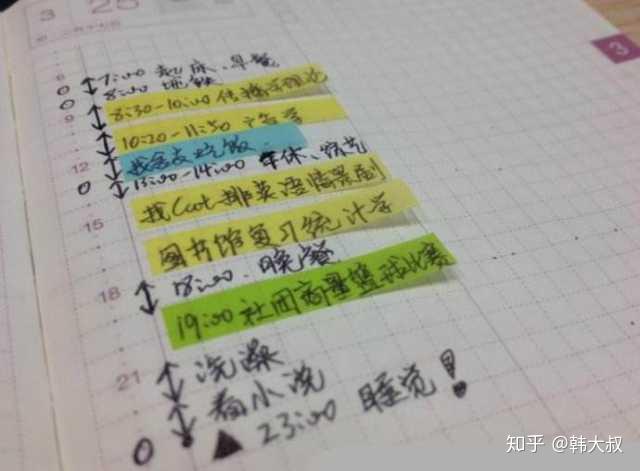 3 25
3
6 7:00 起床、早餐
8:00 地铁
9 8:30-10:00 传播学理论
10:20-11:50 广告学
12 吃饭
13:00-14:00 午休、综艺
找 排英语情景剧
15 图书馆复习统计学
18:00、晚餐
18 19:00 社团商量篮球比赛
21 洗澡
看小说
23:00 睡觉!
知乎 @韩大叔